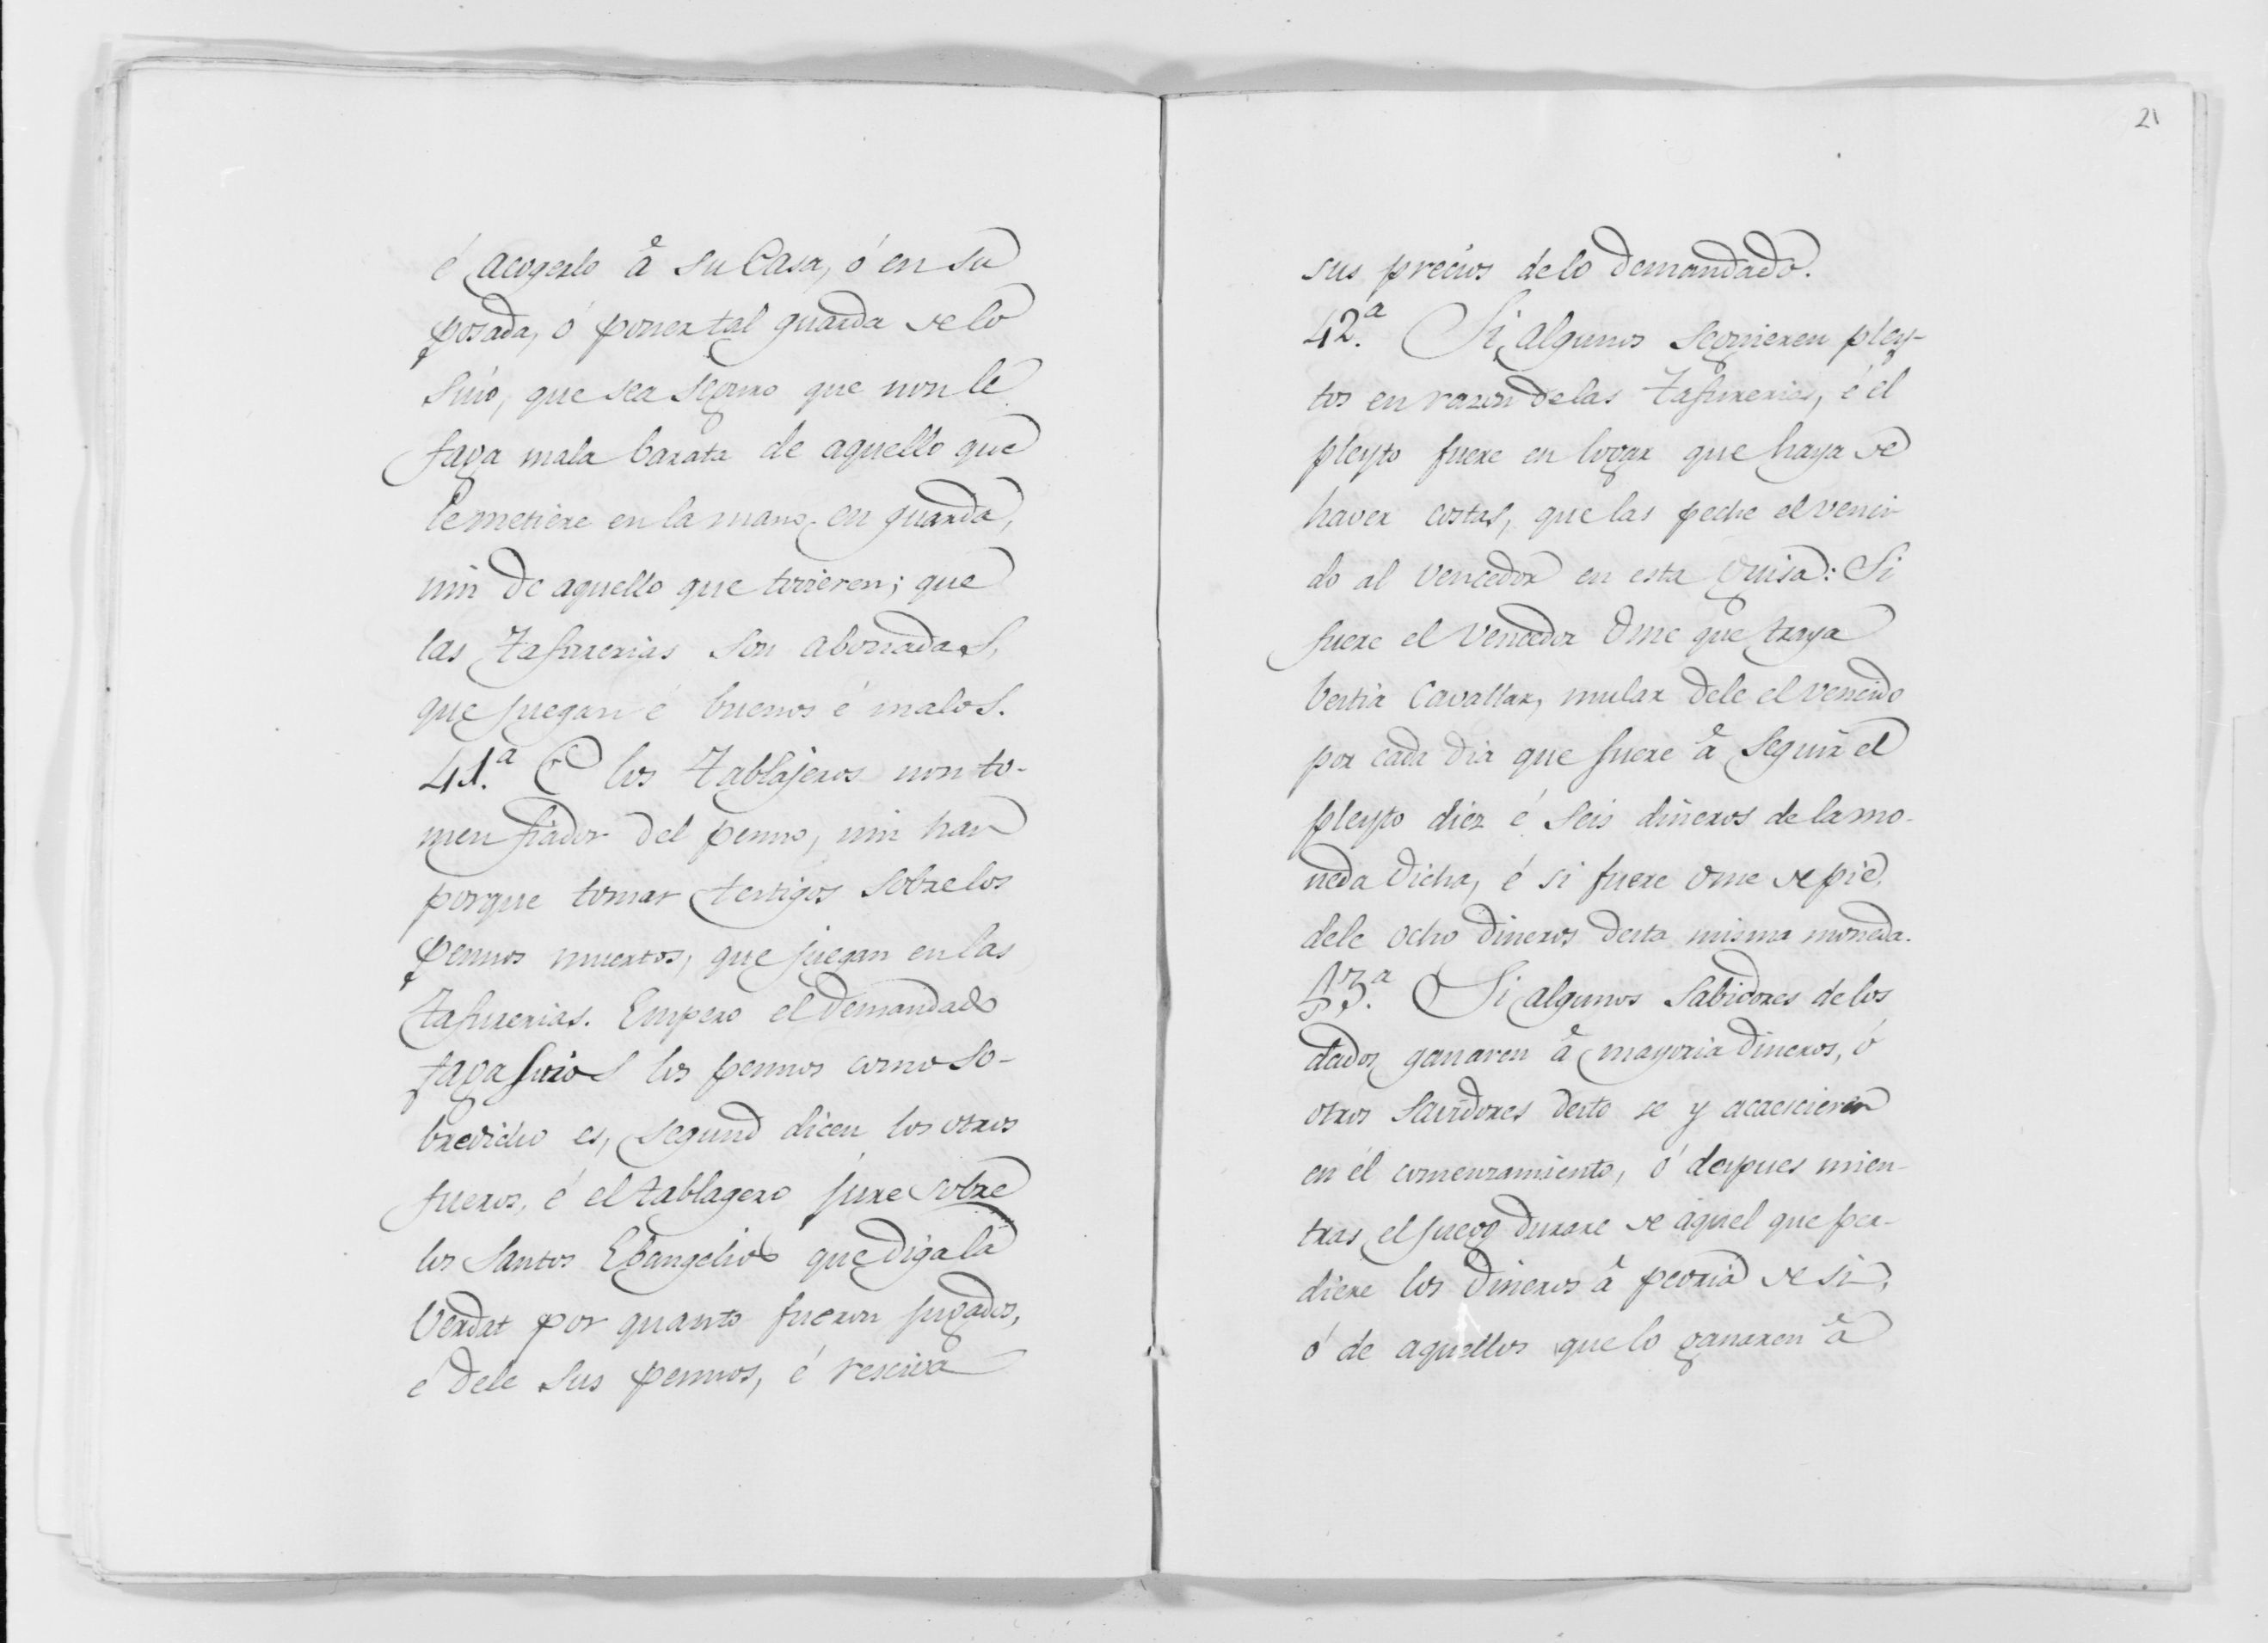 é acogerlo â su Casa, ó en su
posada, ó poner tal guarda de lo
suio, que sea seguro que non le
faga mala barata de aquello que
le metiere en la mano en guarda,
nin de aquello que tovieren; que
las Tafurerias son abonadas,
que juegan é buenos é malos.
41.ª E los Tablajeros non to-
men fiador del penno, nin han
porque tomar testigos sobre los
pennos muertos, que juegan en las
tafurerias. Empero el demandado
faga suios los pennos como so-
bredicho es, segund dicen los otros
fueros, é el tablagero jure sobre
los Santos Ebangelios que diga la
Verdat por quanto fueron jugados,
é dele sus pennos, é resciva
21
sus precios de lo demandado.
42.ª Si algunos seguieren pley-
tos en razon de las Tafurerias, é el
pleyto fuere en logar que haya de
haver costas, que las peche el venci-
do al vencedor en esta Guisa: Si
fuere el vencedor Ome que traya
bestia Cavallar, mular dele el vencido
por cada dia que fuere â seguir el
pleyto diez é seis dineros de la mo-
neda dicha, é si fuere ome de pie,
dele ocho dineros desta misma moneda.
43.ª Si algunos sabidores de los
dados ganaren â mayoria dineros, ó
otros savidores desto se y acaescieren
en él comenzamiento, ó despues mien-
tras el juego durare de aquel que per-
diere los dineros â peoria de si,
ó de aquellos que lo ganaren â